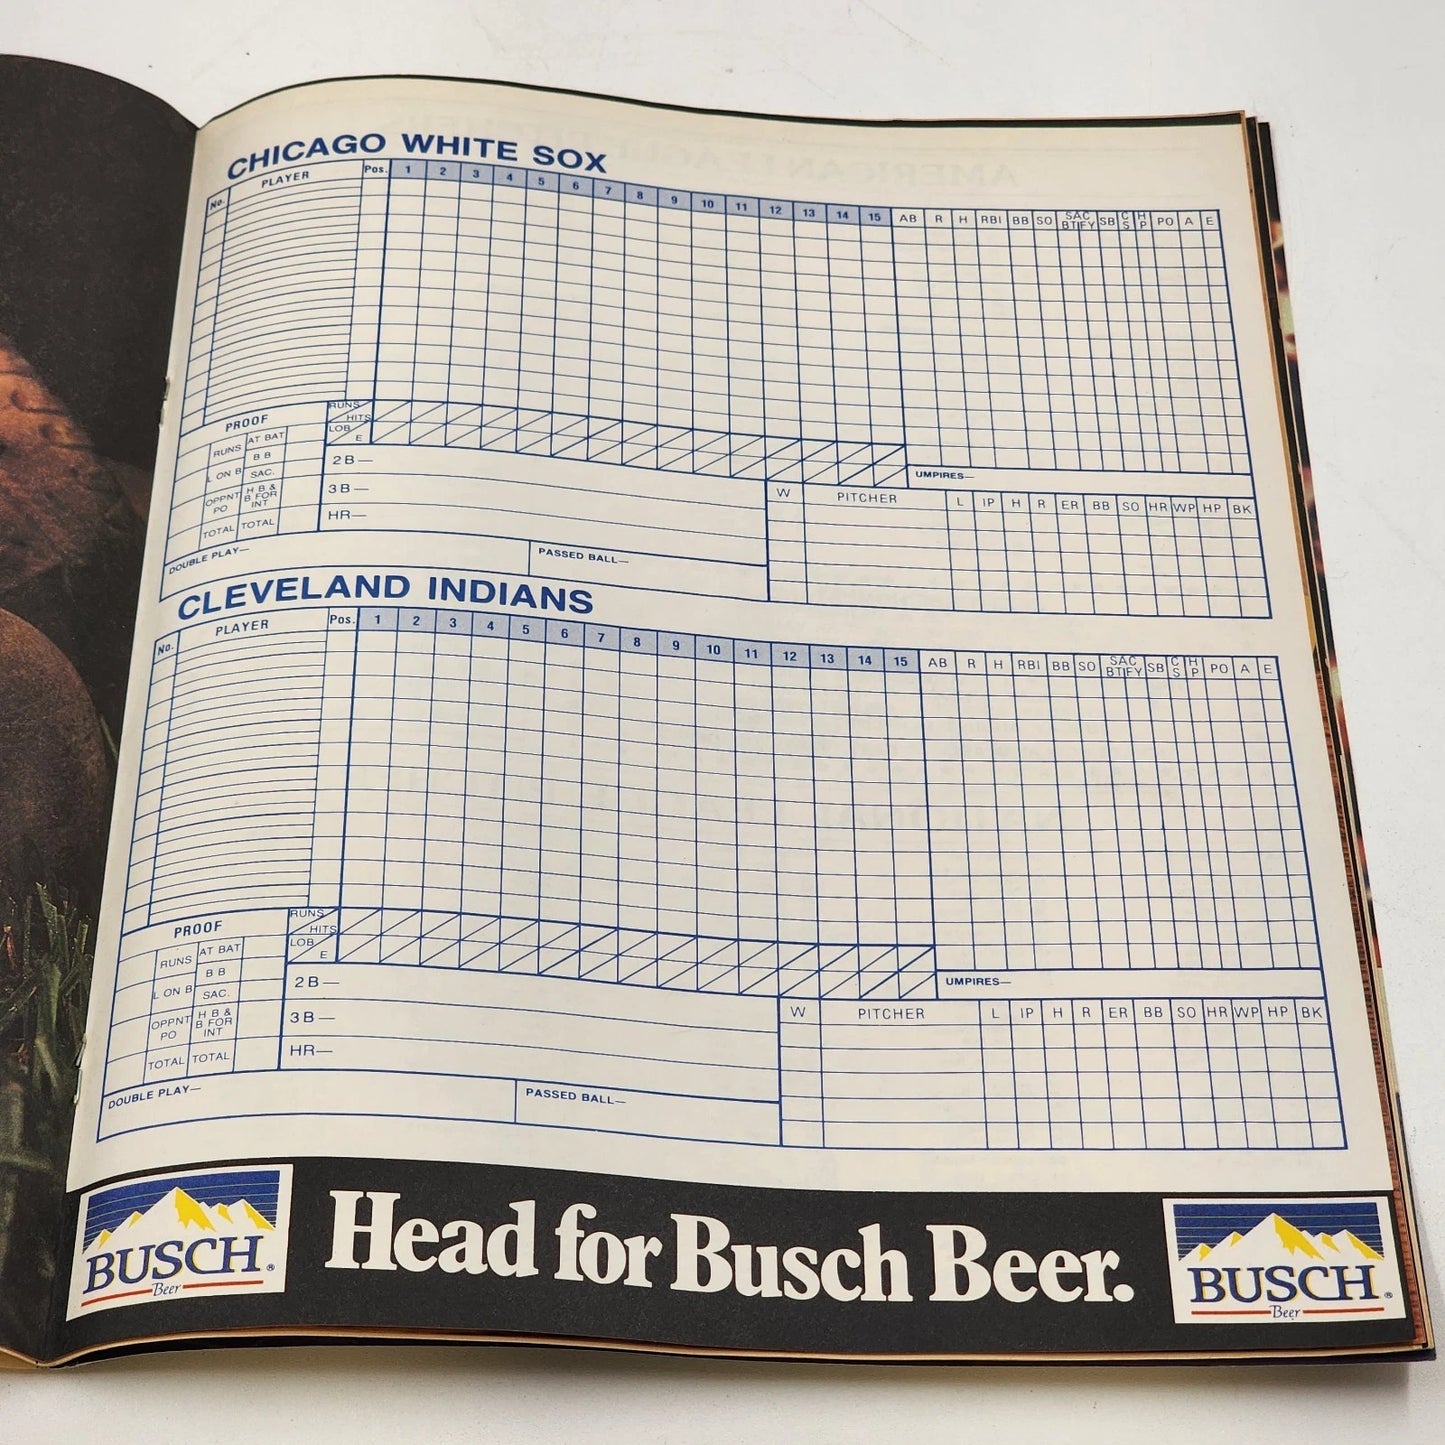 CHICAGO WHITE SOX
No. PLAYER Pos. 1 2 3 4 5 6 7 8 9 10 11 12 13 14 15 AB R H RBI BB SO SAC BT FY SB CS HP PO A E
PROOF
RUNS AT BAT
B B
L ON B SAC.
OPPNT PO H B & B FOR INT
TOTAL TOTAL
RUNS HITS
LOB E
2B—
3B—
HR—
DOUBLE PLAY—
PASSED BALL—
UMPIRES—
W PITCHER L IP H R ER BB SO HR WP HP BK
CLEVELAND INDIANS
No. PLAYER Pos. 1 2 3 4 5 6 7 8 9 10 11 12 13 14 15 AB R H RBI BB SO SAC BT FY SB CS HP PO A E
PROOF
RUNS AT BAT
B B
L ON B SAC.
OPPNT PO H B & B FOR INT
TOTAL TOTAL
RUNS HITS
LOB E
2B—
3B—
HR—
DOUBLE PLAY—
PASSED BALL—
UMPIRES—
W PITCHER L IP H R ER BB SO HR WP HP BK
BUSCH®
Beer
Head for Busch Beer.
BUSCH®
Beer